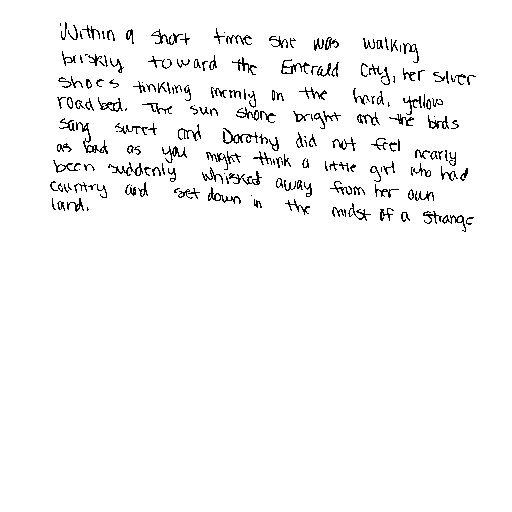 Within a short time she was walking
briskly toward the Emerald City, her silver
shoes tinkling merrily on the hard, yellow
roadbed. The sun shone bright and the birds
sang sweet and Dorothy did not feel nearly
as bad as you might think a little girl who had
been suddenly whisked away from her own
country and set down in the midst of a strange
land.